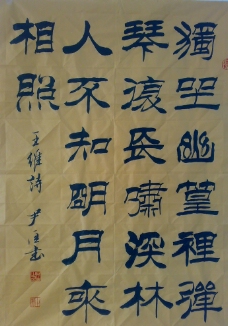 獨坐幽篁裡彈
琴復長嘯深林
人不知明月來
相照
王維詩 尹